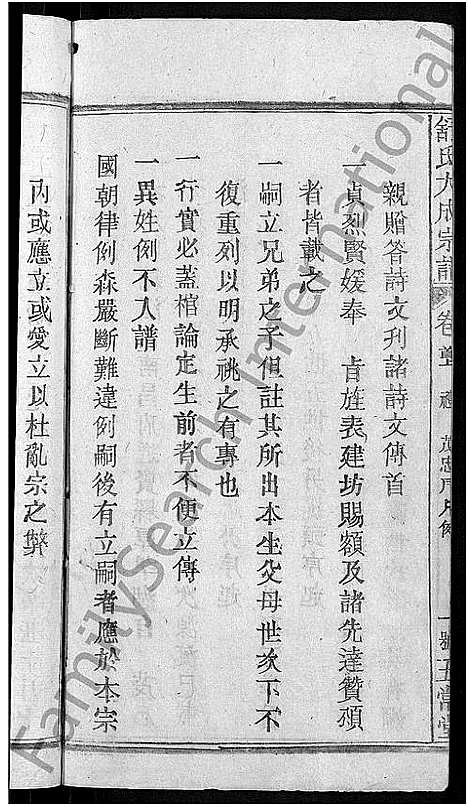 舒氏大成宗譜 卷首
親贈答詩文刊諸詩文傳首
一貞烈賢媛奉 旨旌表建坊賜額及諸先達贊頌
者皆載之
一嗣立兄弟之子但註其所出本生父母世次下不
復重列以明承祧之有專也
一行實必蓋棺論定生前者不便立傳
一異姓例不入譜
國朝律例森嚴斷難違例嗣後有立嗣者應於本宗
內或應立或愛立以杜亂宗之弊
FamilySearch International